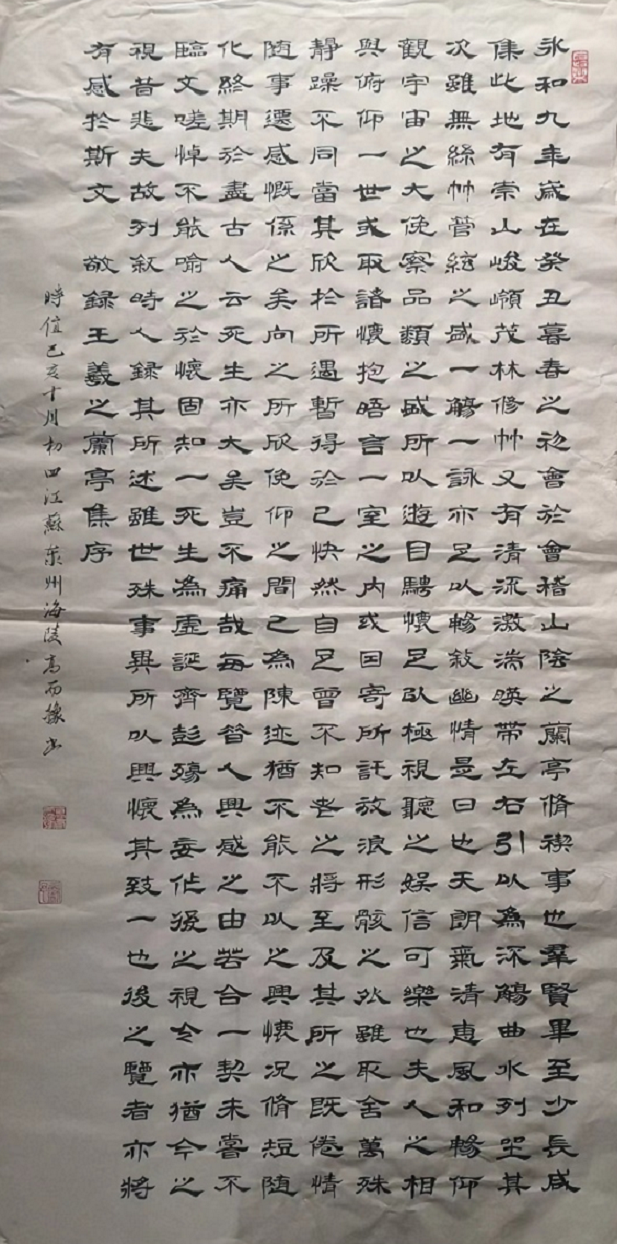 永和九年歲在癸丑暮春之初會於會稽山陰之蘭亭脩禊事也羣賢畢至少長咸
集此地有崇山峻嶺茂林修竹又有清流激湍暎帶左右引以為深觴曲水列坐其
次雖無絲竹管絃之盛一觴一詠亦足以暢敘幽情是日也天朗氣清惠風和暢仰
觀宇宙之大俛察品類之盛所以遊目騁懷足以極視聽之娛信可樂也夫人之相
與俯仰一世或取諸懷抱晤言一室之内或因寄所託放浪形骸之外雖取舍萬殊
靜躁不同當其欣於所遇暫得於己快然自足曾不知老之將至及其所之既倦情
隨事遷感慨係之矣向之所欣俛仰之間已為陳迹猶不能不以之興懷況脩短隨
化終期於盡古人云死生亦大矣豈不痛哉每覽昔人興感之由若合一契未嘗不
臨文嗟悼不能喻之於懷固知一死生為虛誕齊彭殤為妄作後之視今亦猶今之
視昔悲夫故列敘時人錄其所述雖世殊事異所以興懷其致一也後之覽者亦將
有感於斯文 敬錄王羲之蘭亭集序
時值己亥十月初四江蘇泰州海陵高而書